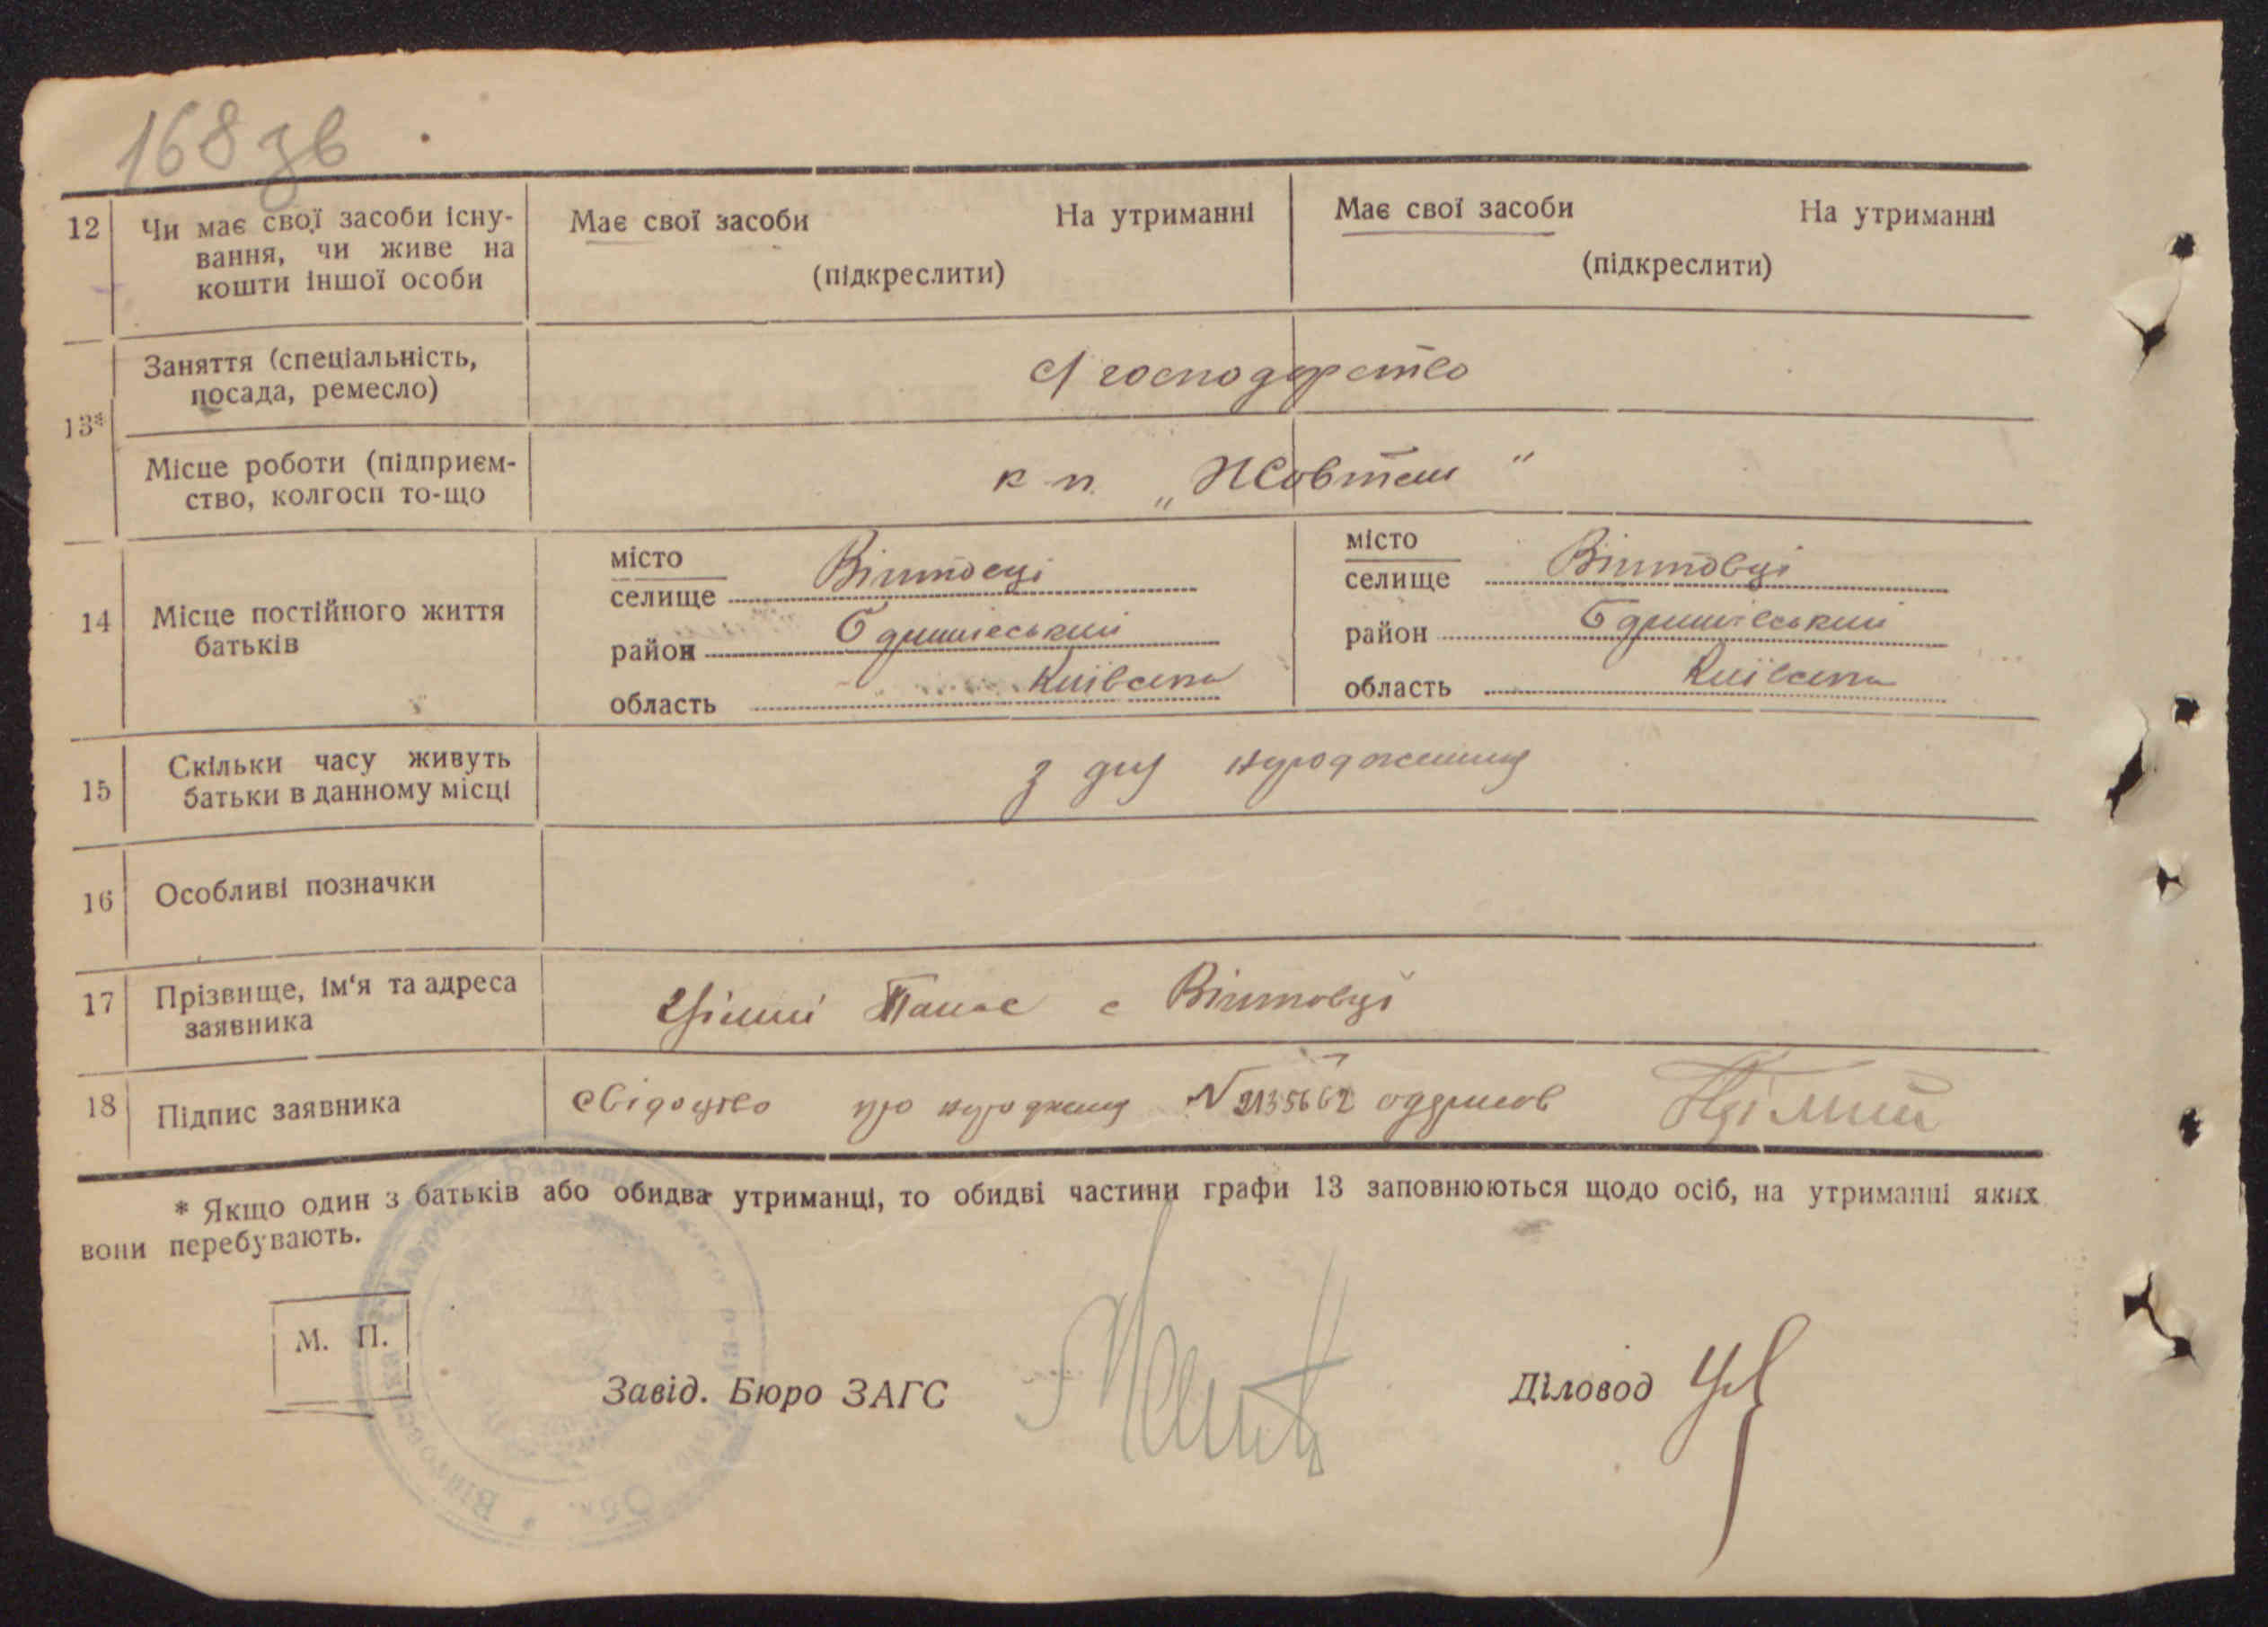 168 зв
12 Чи має свої засоби існу-
вання, чи живе на
кошти іншої особи
Має свої засоби На утриманні
(підкреслити)
Має свої засоби На утриманні
(підкреслити)
13*
Заняття (спеціальність,
посада, ремесло)
с/господарство
Місце роботи (підприєм-
ство, колгосп то-що
к-п. „Жовтень"
14 Місце постійного життя
батьків
місто
селище Війтовці
район
область Київська
місто
селище Війтовці
район
область Київська
15 Скільки часу живуть
батьки в данному місці
з дня народження
16 Особливі позначки
17 Прізвище, ім'я та адреса
заявника
Панас с Війтовці
18 Підпис заявника
свідоцтво про народження N 2135662 одержав
* Якщо один з батьків або обидва утриманці, то обидві частини графи 13 заповнюються щодо осіб, на утриманні яких
вони перебувають.
М. П.
Завід. Бюро ЗАГС
Діловод